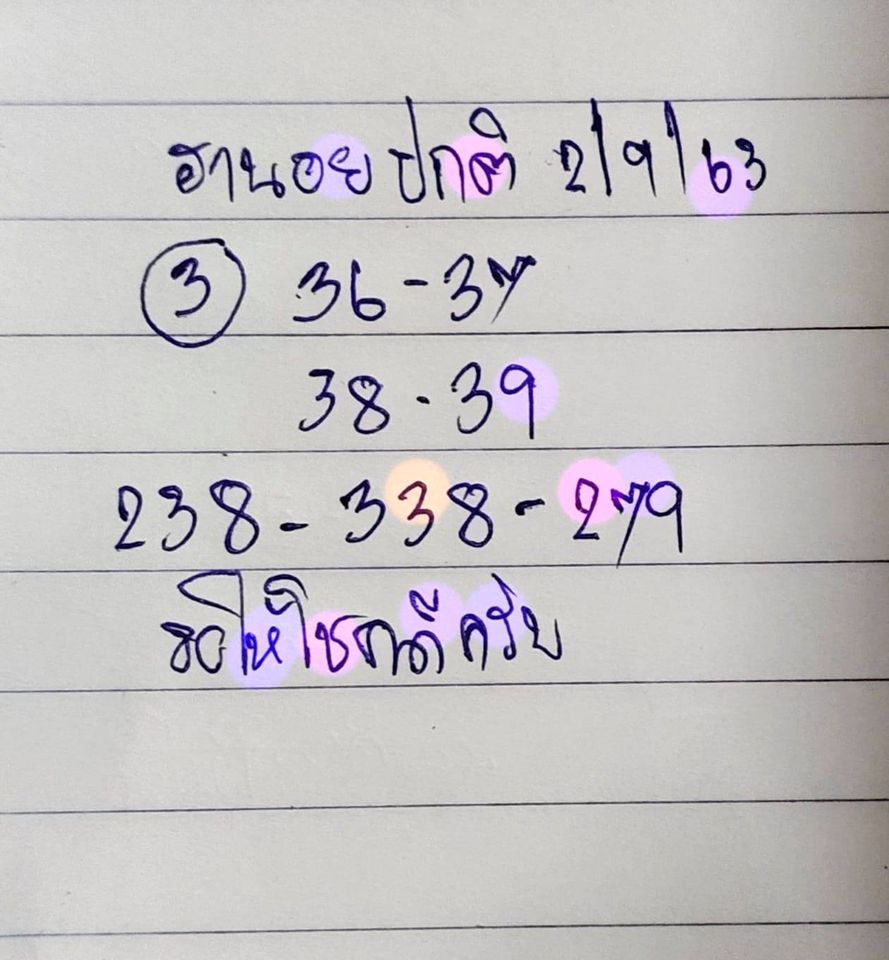 ฮานอยปกติ 2/9/63
3 36-37
38-39
238-338-279
ขอให้โชคดีครับ